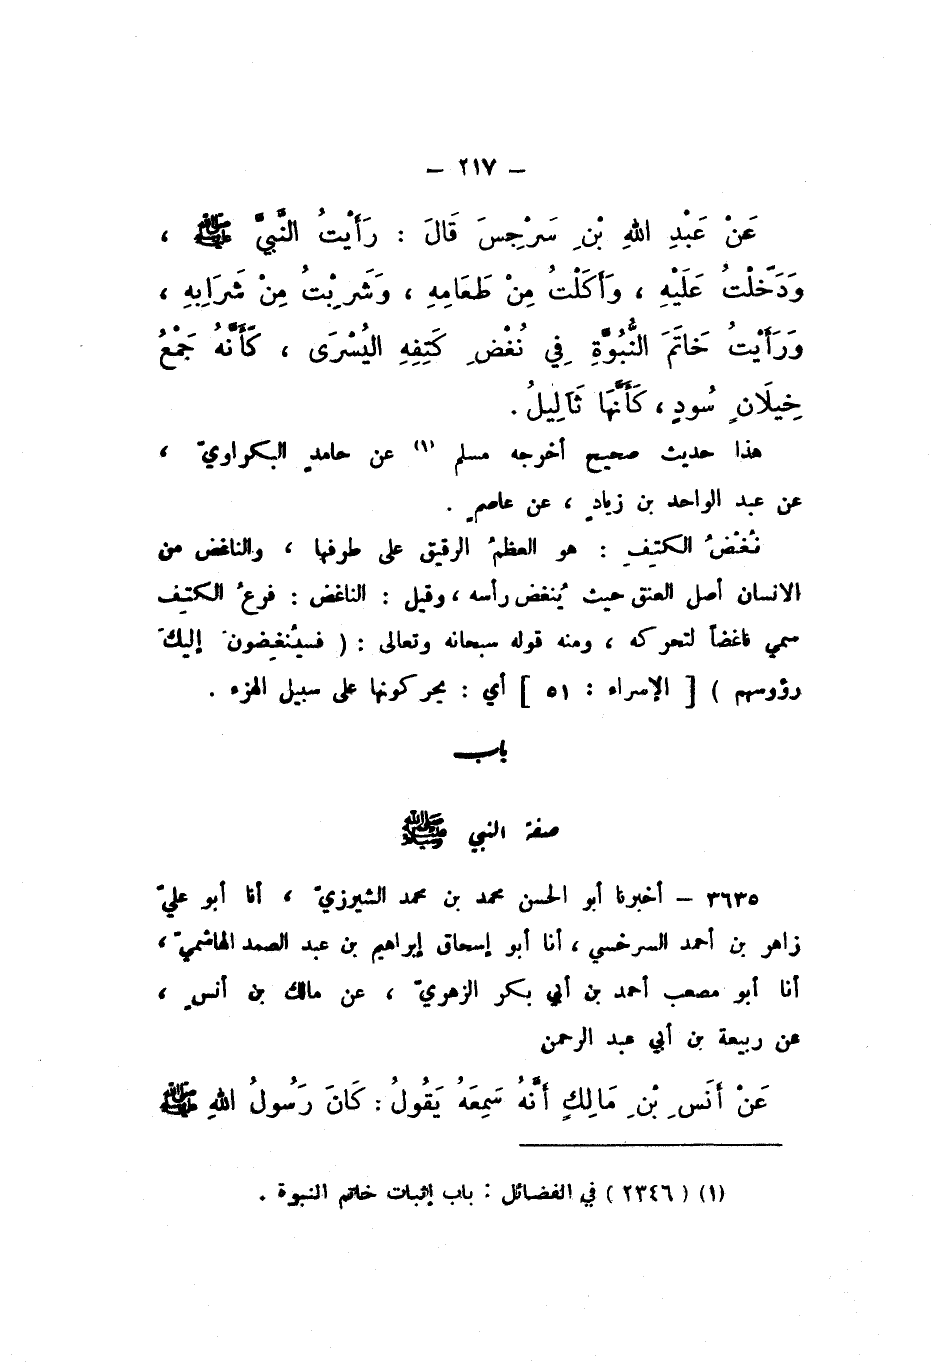 - ٢١٧ -
عَنْ عَبْدِ اللهِ بْنِ سَرْجِسَ قَالَ : رَأَيْتُ النَّبِيَّ ﷺ ،
وَدَخَلْتُ عَلَيْهِ ، وَأَكَلْتُ مِنْ طَعَامِهِ ، وَشَرِبْتُ مِنْ شَرَابِهِ ،
وَرَأَيْتُ خَاتَمَ النُّبُوَّةِ فِي نُغْضِ كَتِفِهِ اليُسْرَى ، كَأَنَّهُ جَمْعُ
خِيلَانٍ سُودٍ ، كَأَنَّهَا ثَآلِيلُ .
هذا حديث صحيح أخرجه مسلم (١) عن حامدٍ البكراويّ ،
عن عبد الواحد بن زيادٍ ، عن عاصمٍ .
نُغْضُ الكتِفِ : هو العظمُ الرقيق على طرفها ، والناغض من
الانسان أصل العنق حيث يُنغض رأسه ، وقيل : الناغض : فرعُ الكتِف
سمي ناغضاً لتحركه ، ومنه قوله سبحانه وتعالى : ( فسيُنغِضونَ إليكَ
رؤوسهم ) [ الإسراء : ٥١ ] أي : يحركونها على سبيل الهزء .
باب
صفة النبي ﷺ
٣٦٣٥ - أخبرنا أبو الحسن محمد بن محمد الشيرزيّ ، أنا أبو عليّ
زاهر بن أحمد السرخسي ، أنا أبو إسحاق إبراهيم بن عبد الصمد الهاشميّ ،
أنا أبو مصعب أحمد بن أبي بكر الزهريّ ، عن مالك بن أنسٍ ،
عن ربيعة بن أبي عبد الرحمن
عَنْ أَنَسِ بْنِ مَالِكٍ أَنَّهُ سَمِعَهُ يَقُولُ : كَانَ رَسُولُ اللهِ ﷺ
(١) ( ٢٣٤٦ ) في الفضائل : باب إثبات خاتم النبوة .